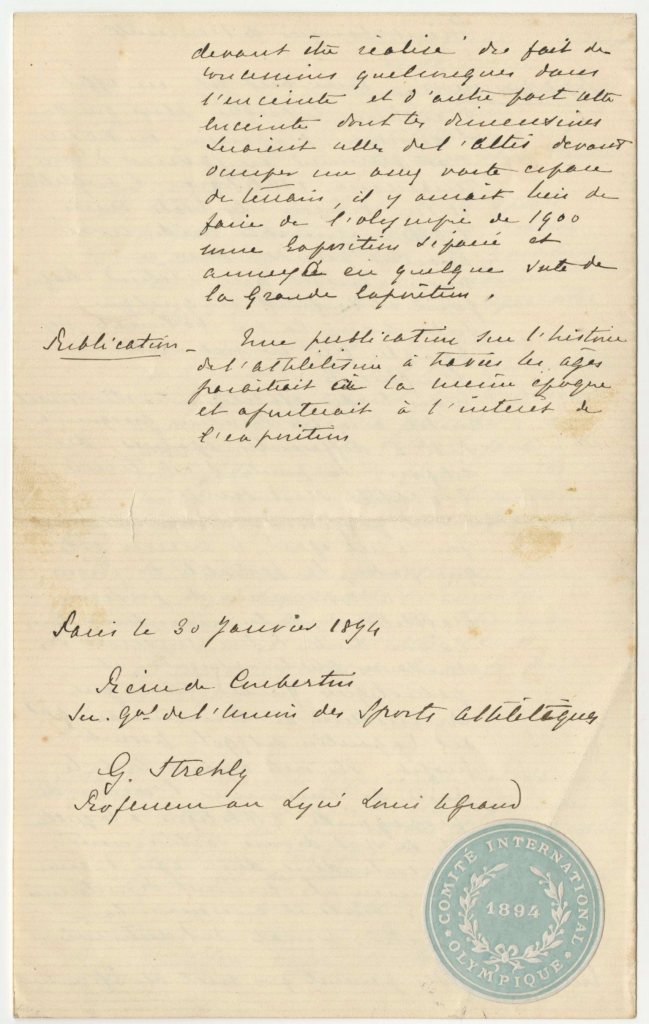 devant être réalisé du fait de
concessions quelconques dans
l'enceinte et d'autre part cette
enceinte dont les dimensions
seraient celles de l'Altis devant
occuper un assez vaste espace
de terrain, il y aurait lieu de
faire de l'olympie de 1900
une Exposition séparée et
annexée en quelque sorte de
la Grande Exposition.
Publication - Une publication sur l'histoire
de l'athlétisme à travers les ages
paraitrait à la même époque
et ajouterait à l'intérêt de
l'exposition
Paris le 30 Janvier 1894
Pierre de Coubertin
Sec. Gal de l'Union des Sports Athlétiques
G. Strehly
Professeur au Lycée Louis le Grand
COMITÉ INTERNATIONAL
1894
OLYMPIQUE